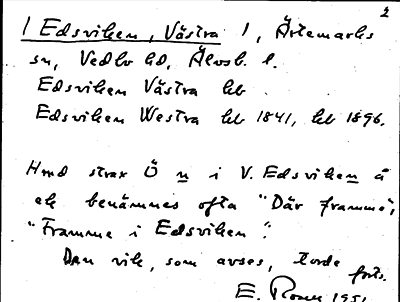 2
1 Edsviken, Västra 1, Ärtemarks
sn, Vedbo hd, Älvsb. l.
Edsviken Västra hb
Edsviken Westra hb 1841, hb 1896.
Hmd strax Ö n i V. Edsviken å
ek benämnes ofta "Där framme",
"Framme i Edsviken".
Den vik, som avses, torde forts.
E. 1951